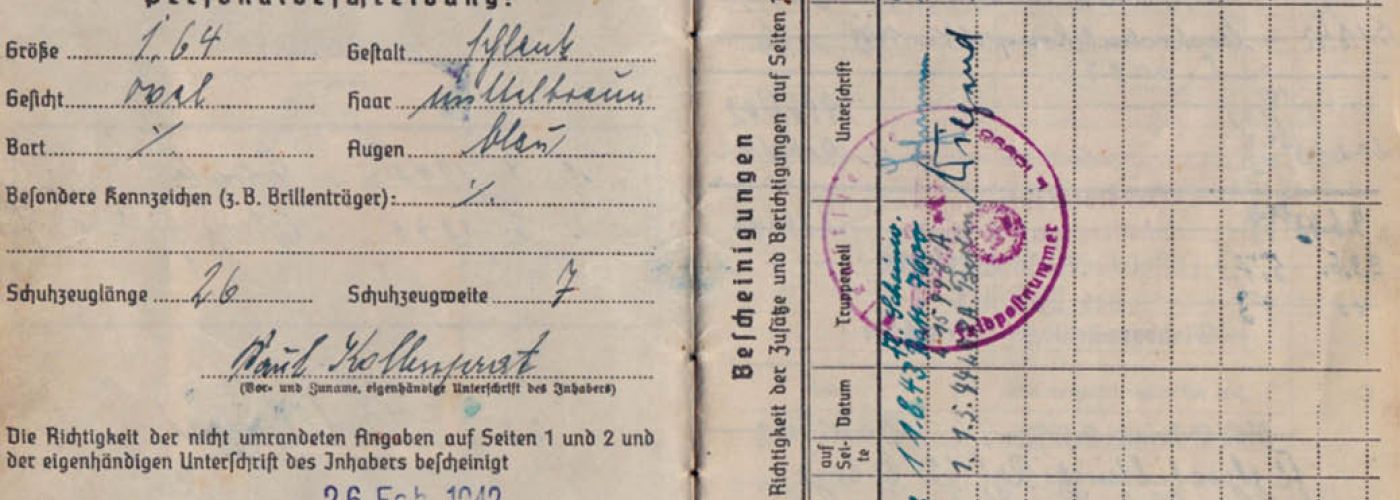 Personalbeschreibung:
Größe 1,64 Gestalt schlank
Gesicht oval Haar mittelbraun
Bart ⁒ Augen blau
Besondere Kennzeichen (z. B. Brillenträger): ⁒
Schuhzeuglänge 26 Schuhzeugweite 7
Paul
(Vor- und Zuname, eigenhändige Unterschrift des Inhabers)
Die Richtigkeit der nicht umrandeten Angaben auf Seiten 1 und 2 und
der eigenhändigen Unterschrift des Inhabers bescheinigt
26 Feb. 1942
Bescheinigungen
Richtigkeit der Zusätze und Berichtigungen auf Seiten
auf Sei- te Datum Truppenteil Unterschrift
1 1.8.43
1. 1.5.44 Wiegand
Feldpostnummer